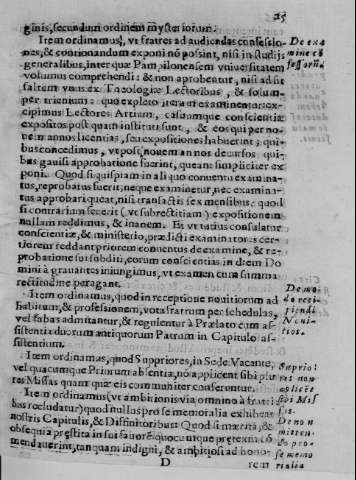 25
ginis, secundum ordinem mysteriorum.
Item ordinamus, vt fratres ad audiendas confessio-
nes, & contionandum exponi nō possint, nisi in studijs
generalibus, inter quæ Pampilonensem vniuersitatem
volumus comprehendi: & non aprobentur, nisi adsit
saltem vnus ex Theologiæ Lectoribus, & solum
per trienium: quo expleto iterum examinentur: ex-
cipimus Lectores Artium, casuumque conscientiæ
expositos post quam instituti sunt, & eos qui per no-
uem annos licentias, seu expositiones habuerint; qui-
bus concedimus, vt post nouem annos decursos qui-
bus gauisi approbatione fuerint, queant simpliciter ex
poni. Quod si quispiam in ali quo conuentu examina-
tus, reprobatus fuerit; neque examinetur, nec examina-
tus approbari queat, nisi transactis sex mensibus: quod
si contrarium fecerit (vt subrectitiam) expositionem
nullam reddimus, & inanem. Et vt tutius consulatur
conscientiæ, & ministerio, prædicti examinatores cer-
tiorem reddant priorem contentus de examine, & re-
probatione sui subditi, eorum conscientias in diem Do
mini agrauantes iniungimus, vt examen cum summa
rectitudine peragant.
Item ordinamus, quod in receptione nouitiorum ad
habitum, & professionem, vota fratrum per schedulas,
vel fabas admitantur, & regulentur à Prælato cum as-
sistentia duorum antiquorum Patrum in Capitulo as-
sistentium.
Item ordinamus, quod Suppriores, in Sede Vacante,
vel quacumque Priorum absentia, nō applicent sibi plu
res Missas quam quæ eis communiter conferuntur.
Item ordinamus (vt ambitionis via omnino à fratri
bus recludatur) quod nullus pro se memoralia exhibeat
nostris Capitulis, & Diffinitoribus: Quod si maritè, &
obsequia prestita in sui fauorē quocunque pretextu cō
mendauerint, tanquam indigni, & ambitiosi ad honor
D
rem
De exa
mine cō
fessorū
Demo-
do reci-
piendi
Noui-
tios.
Supprio
res non
applicēt
sibi Mis
sas.
De non
mitten-
do pro-
se memo
rialia